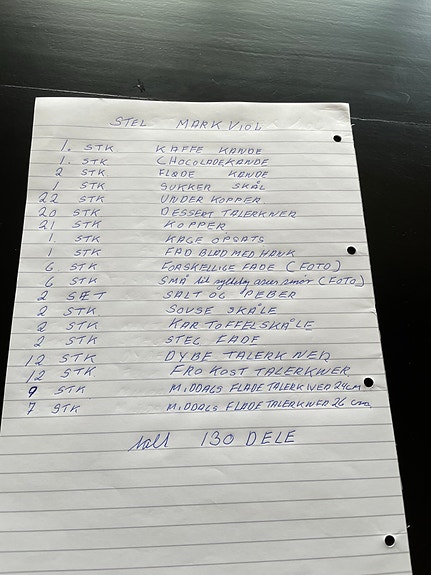 STEL MARK VIOL
1. STK KAFFE KANDE
1. STK CHOCOLADEKANDE
2 STK FLØDE KANDE
1 STK SUKKER SKÅL
22 STK UNDER KOPPER
20 STK DESSERT TALERKNER
21 STK KOPPER
1 STK KAGE OPSATS
1 STK FAD BLAD MED HANK
6 STK FORSKELLIGE FADE (FOTO)
6 STK SMÅ til smør (FOTO)
2 SÆT SALT OG PEBER
2 STK SOVSE SKÅLE
2 STK KARTOFFELSKÅLE
2 STK STEL FADE
12 STK DYBE TALERKNER
12 STK FROKOST TALERKNER
9 STK MIDDAGS FLADE TALERKNER 24cm
7 STK MIDDAGS FLADE TALERKNER 26 cm
130 DELE